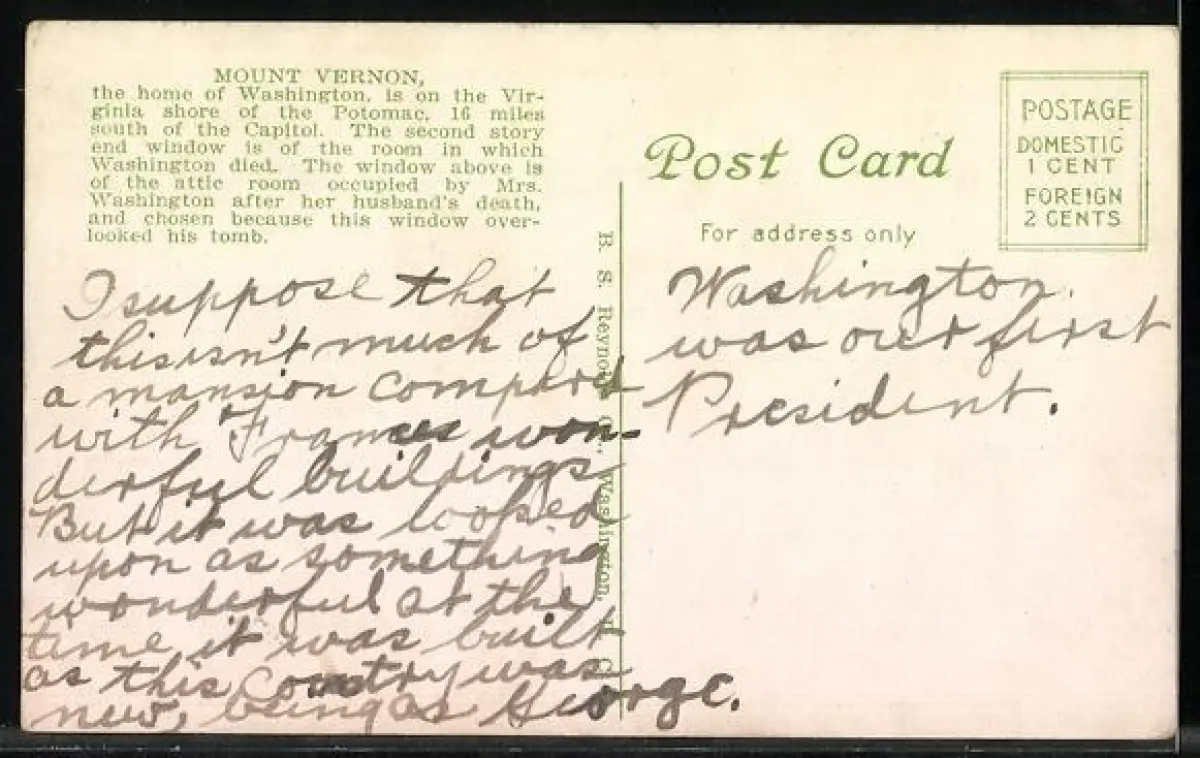 MOUNT VERNON,
the home of Washington, is on the Vir-
ginia shore of the Potomac, 16 miles
south of the Capitol. The second story
end window is of the room in which
Washington died. The window above is
of the attic room occupied by Mrs.
Washington after her husband's death,
and chosen because this window over-
looked his tomb.
I suppose that
this isn't much of
a mansion compared
with Frances won-
derful buildings
But it was looked
upon as something
wonderful at the
time it was built
as this country was
new, being as George.
B. S. Reynolds Co., Washington, D. C.
Post Card
For address only
POSTAGE
DOMESTIC
1 CENT
FOREIGN
2 CENTS
Washington
was our first
President.